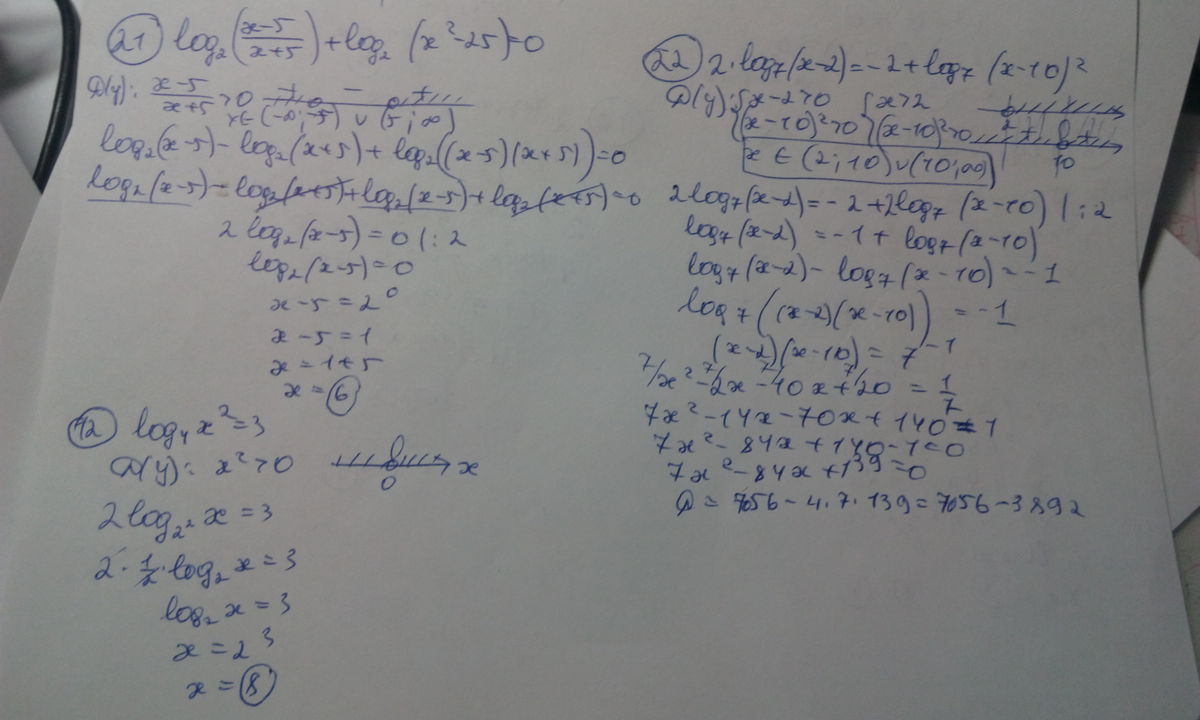 21) log₂((x-5)/(x+5)) + log₂ (x²-25)=0
D(y): (x-5)/(x+5) >0 + - +
x∈(-∞;-5) ∪ (5;∞)
log₂(x-5) - log₂(x+5) + log₂((x-5)(x+5))=0
log₂(x-5) - log₂(x+5) + log₂(x-5) + log₂(x+5)=0
2 log₂(x-5)=0 |:2
log₂(x-5)=0
x-5=2⁰
x-5=1
x=1+5
x=6
12) log₄x²=3
D(y): x²>0 0 x
2log_{2²} x=3
2·1/2·log₂ x=3
log₂ x=3
x=2³
x=8
22) 2·log₇(x-2)=-2+log₇ (x-10)²
D(y): {x-2>0 {x>2 2
{(x-10)²>0 {(x-10)²>0 + + 10
x∈(2;10)∪(10;∞)
2log₇(x-2)=-2+2log₇ (x-10) |:2
log₇(x-2) =-1+ log₇(x-10)
log₇(x-2)- log₇(x-10)=-1
log₇((x-2)(x-10)) =-1
(x-2)(x-10)= 7⁻¹
7/x²-7/2x-7/10x+7/20 = 1/7
7x²-14x-70x+140=1
7x²-84x+140-1=0
7x²-84x+139=0
D= 7056-4·7·139=7056-3892